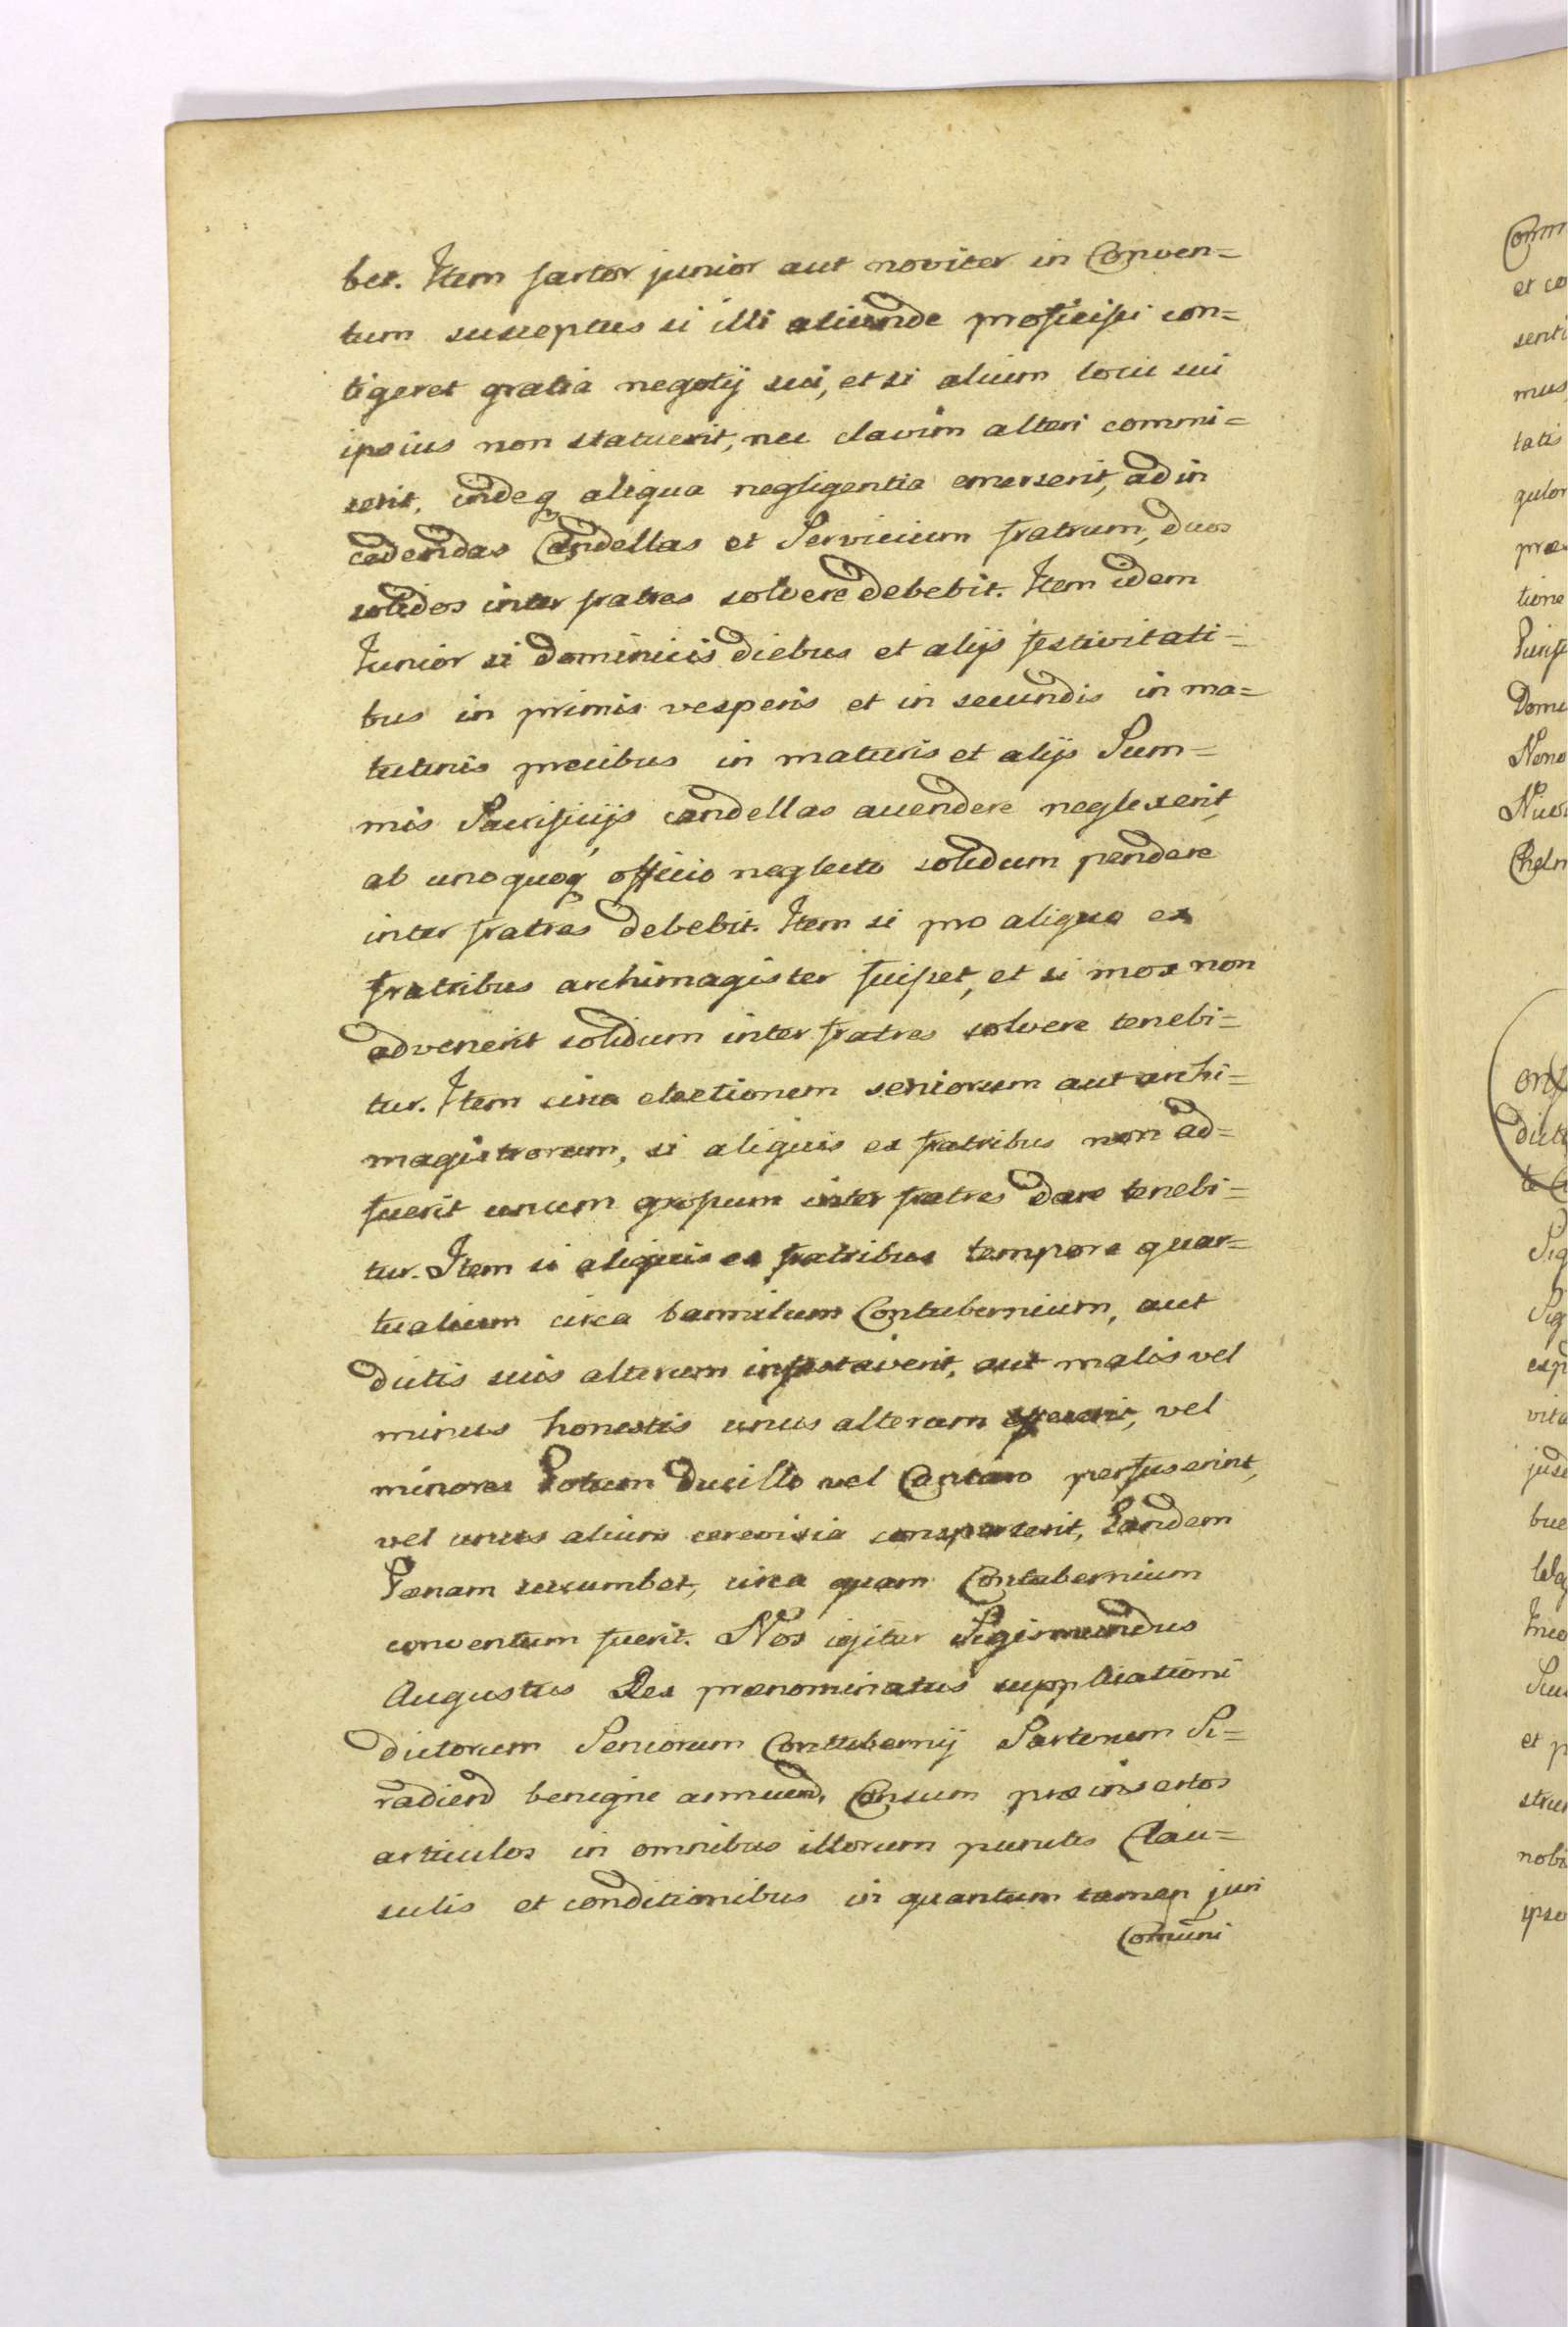 bet. Item sartor junior aut noviter in Conven=
tum susceptus si illi aliunde proficisci con=
tigeret gratia negotij sui, et si alium loco sui
ipsius non statuerit, nec clavim alteri commi=
serit, indeq aliqua negligentia emerserit, ad in
cedendas Candellas et Servicium fratrum, duos
solidos inter fratres solvere debebit. Item idem
Junior si dominicis diebus et alijs festivitati=
bus in primis vesperis et in secundis in ma=
tutinis precibus in maturis et alijs Sum=
mis Sacrificijs candellas accendere neglexerit,
ab unoquoq officio neglecto solidum pendere
inter fratres debebit. Item si pro aliquo ex
fratribus archimagister suisset, et si mox non
advenerit solidum inter fratres solvere tenebi=
tur. Item circa electionem seniorum aut archi=
magistrorum, si aliquis ex fratribus non ad=
fuerit unum grossum inter fratres dare tenebi=
tur. Item si aliquis ex fratribus tempore quar=
tualium circa bannitum Contubernium, aut
dictis suis alterum infestaverit, aut malis vel
minus honestis unus alteram vel
minores Potum Ducillo vel Cantaro perfuserint,
vel unus alium cerevisia consparserit, Eandem
Pœnam succumbet, circa quam Contubernium
conventum fuerit. Nos igitur Sigismundus
Augustus Rex prænominatus supplicationi
dictorum Seniorum Contubernij Sartorum Si=
radien benigne annuend. Consum præinsertos
articulos in omnibus illorum punctis Clau=
sulis et conditionibus in quantum tamen juri
Comuni
Comm
et co
senti
mus
tatis
gulor
præ
tione
Domi
Nono
Chelm
dict
Sig
Sig
exp
vita
bue
et p
nobi
ipso